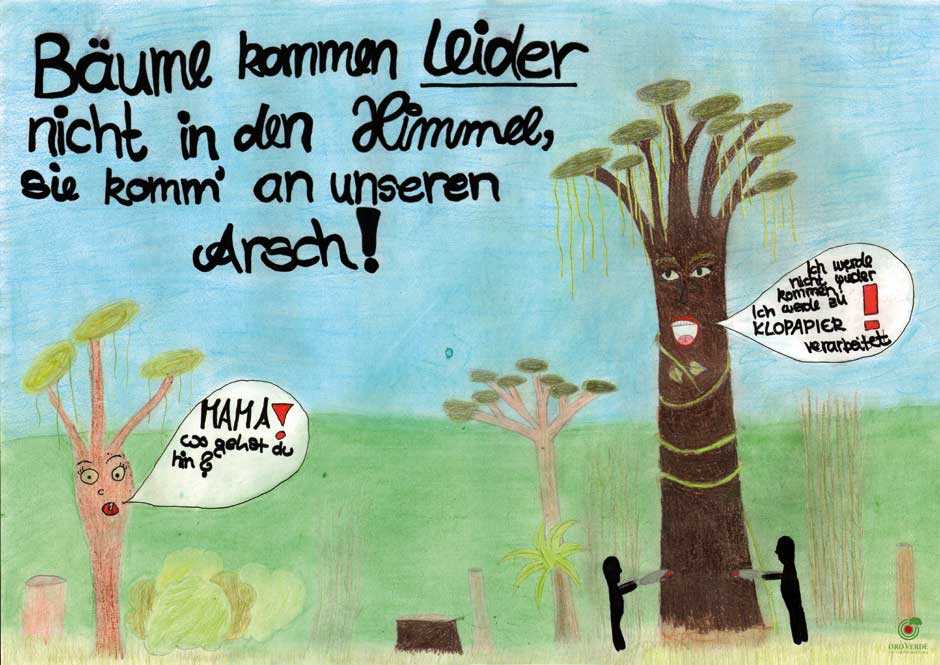 Bäume kommen leider
nicht in den Himmel,
sie komm' an unseren
Arsch!
Ich werde
nicht wieder
kommen!
Ich werde zu
KLOPAPIER
verarbeitet!
MAMA!
wo gehst du
hin?
ORO VERDE